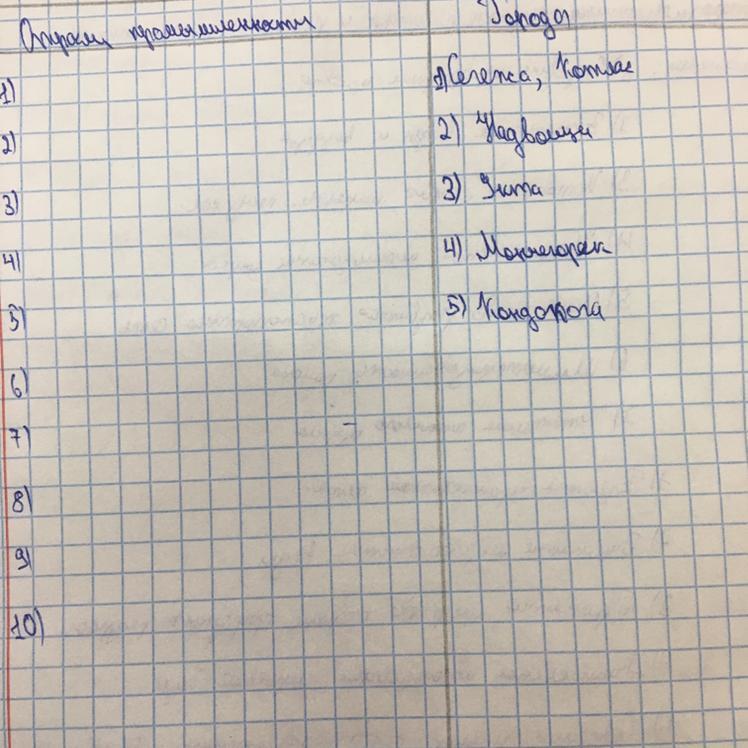 Отрасли промышленности
Города
1)
1) Сегежа, Котлас
2)
2) Надвоицы
3)
3) Ухта
4)
4) Мончегорск
5)
5) Кондопога
6)
7)
8)
9)
10)